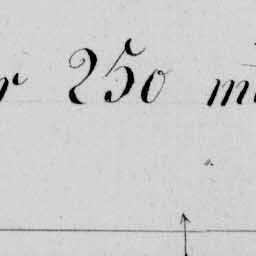 r 250 m